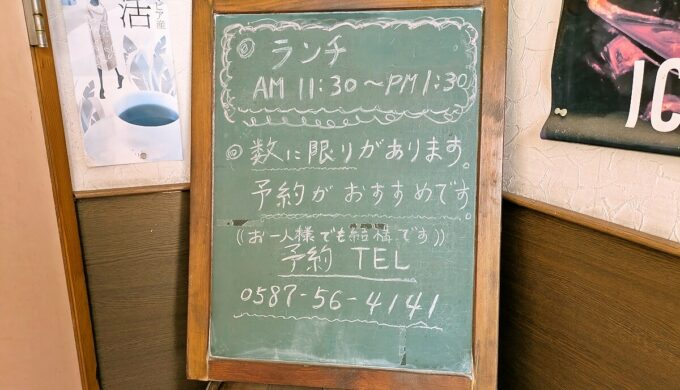 ピア産
活
IC
◎ ランチ
AM 11:30〜PM1:30
◎ 数に限りがあります。
予約がおすすめです。
((お一人様でも結構です))
予約 TEL
0587-56-4141